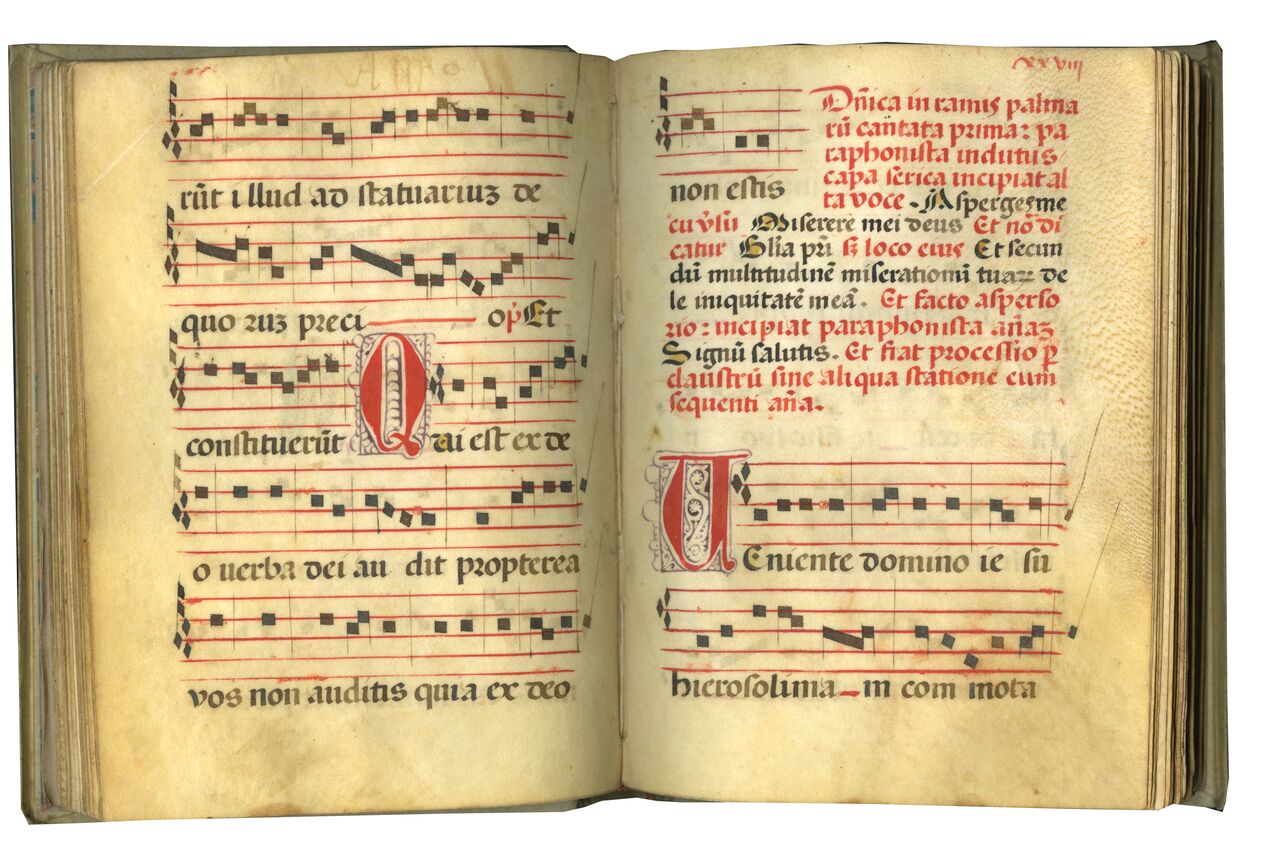 rũt illud ad statuariuʒ de
quo ruʒ preci op̃ Et
constituerũt Qui est ex de
o uerba dei au dit propterea
vos non auditis quia ex deo
xxviii
non estis
Dñica in ramis palma
rũ cantata prima: pa
raphonista indutus
capa serica incipiat al
ta voce. Asperges me
cũ v̓sũ Miserere mei deus Et nõ di
catur Gl̃ia pr̃i sꝫ loco eius Et secun
dũ multitudinẽ miserationũ tuaꝝ de
le iniquitatẽ meã. Et facto asperso
rio: incipiat paraphonista añaʒ
Signũ salutis. Et fiat processio p̱
claustrũ sine aliqua statione cum
sequenti aña.
Ueniente domino ie su
hierosolima in com mota